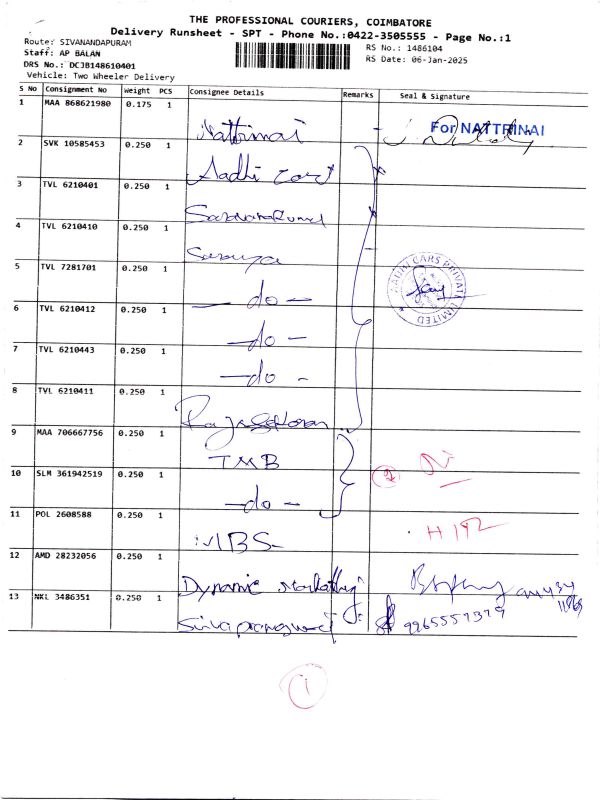 THE PROFESSIONAL COURIERS, COIMBATORE
Delivery Runsheet - SPT - Phone No.:0422-3505555 - Page No.:1
Route: SIVANANDAPURAM
RS No.: 1486104
Staff: AP BALAN
RS Date: 06-Jan-2025
DRS No.: DCJB148610401
Vehicle: Two Wheeler Delivery
S No Consignment No Weight PCS Consignee Details Remarks Seal & Signature
1 MAA 868621980 0.175 1 Nattrinai For NATTRINAI
2 SVK 10585453 0.250 1 Aadhi Cars
3 TVL 6210401 0.250 1
4 TVL 6210410 0.250 1
5 TVL 7281701 0.250 1 -do-
AADHI CARS PRIVATE LIMITED
6 TVL 6210412 0.250 1 -do-
7 TVL 6210443 0.250 1 -do-
8 TVL 6210411 0.250 1
9 MAA 706667756 0.250 1 TMB
10 SLM 361942519 0.250 1 -do-
11 POL 2608588 0.250 1 H 192
12 AMD 28232056 0.250 1 Dynamic
13 NKL 3486351 0.250 1 9965557379
1